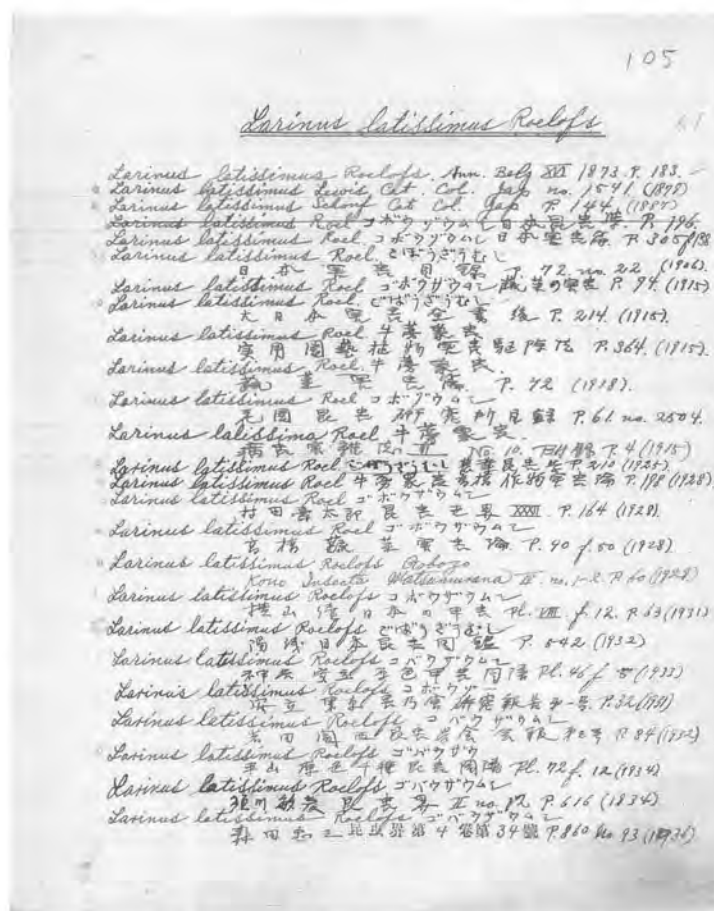 105
Larinus latissimus Roelofs
Larinus latissimus Roelofs. Ann. Belg XVI 1873. P. 183.
Larinus latissimus Lewis, Cat. Col. Jap no. 1541. (1879)
Larinus latissimus Schonf Cat Col. Jap P. 144. (1887)
Larinus latissimus Roel コボウザウムシ 日本昆虫学. P. 196.
Larinus latissimus Roel. コボウザウムシ 日本害虫篇. P. 305
Larinus latissimus Roel. ごぼうざうむし
日本害虫目録 P. 72. no. 22 (1906).
Larinus latissimus Roel コボウザウムシ 蔬菜の害虫 P. 94. (1915)
Larinus latissimus Roel. ごぼうざうむし
大日本害虫全書 後 P. 214. (1915).
Larinus latissimus Roel 牛蒡象虫
実用園藝植物害虫駆除法 P. 364. (1915).
Larinus latissimus Roel. 牛蒡象虫.
蔬菜害虫 P. 72 (1918).
Larinus latissimus Roel コボウザウムシ
昆虫研究所目録 P. 61. no. 2504.
Larinus lalissima Roel 牛蒡象虫.
病虫害雑 II No 10. P. 4 (1915)
Larinus latissimus Roel ごぼうざうむし P. 210 (1925).
Larinus latissimus Roel 牛蒡象虫 作物害虫論 P. 198 (1928).
Larinus latissimus Roel ゴボウザウムシ
村田壽太郎 昆虫世界 XXXII. P. 164 (1928).
Larinus latissimus Roel ゴボウザウムシ
高橋 蔬菜害虫論. P. 90 f. 50 (1928)
Larinus latissimus Roelofs Gobozo
Kono Insecta Matsumurana III. no. 1-2. P. 60 (1928)
Larinus latissimus Roelofs コボウザウムシ
横山 日本の甲虫 Pl. VIII. f. 12. P. 63 (1931)
Larinus latissimus Roelofs ごぼうざうむし
湯浅 日本昆虫図鑑 P. 642 (1932)
Larinus latissimus Roelofs コバウザウムシ
神谷 安立 原色甲虫図譜 Pl. 46 f. 5 (1933)
Larinus latissimus Roelofs コボウザウ
P. 32 (1931)
Larinus latissimus Roelofs コバウザウムシ
吉田 関西昆虫 会報 P. 84 (1932)
Larinus latissimus Roelofs ゴバウザウ
平山 原色千種昆虫図譜 Pl. 72 f. 12 (1934)
Larinus latissimus Roelofs ゴバウザウムシ
昆虫界 II no. 12 P. 616 (1834)
Larinus latissimus Roelofs ゴバウザウムシ
昆虫界第4巻第34號 P. 860 No 93 (1936)